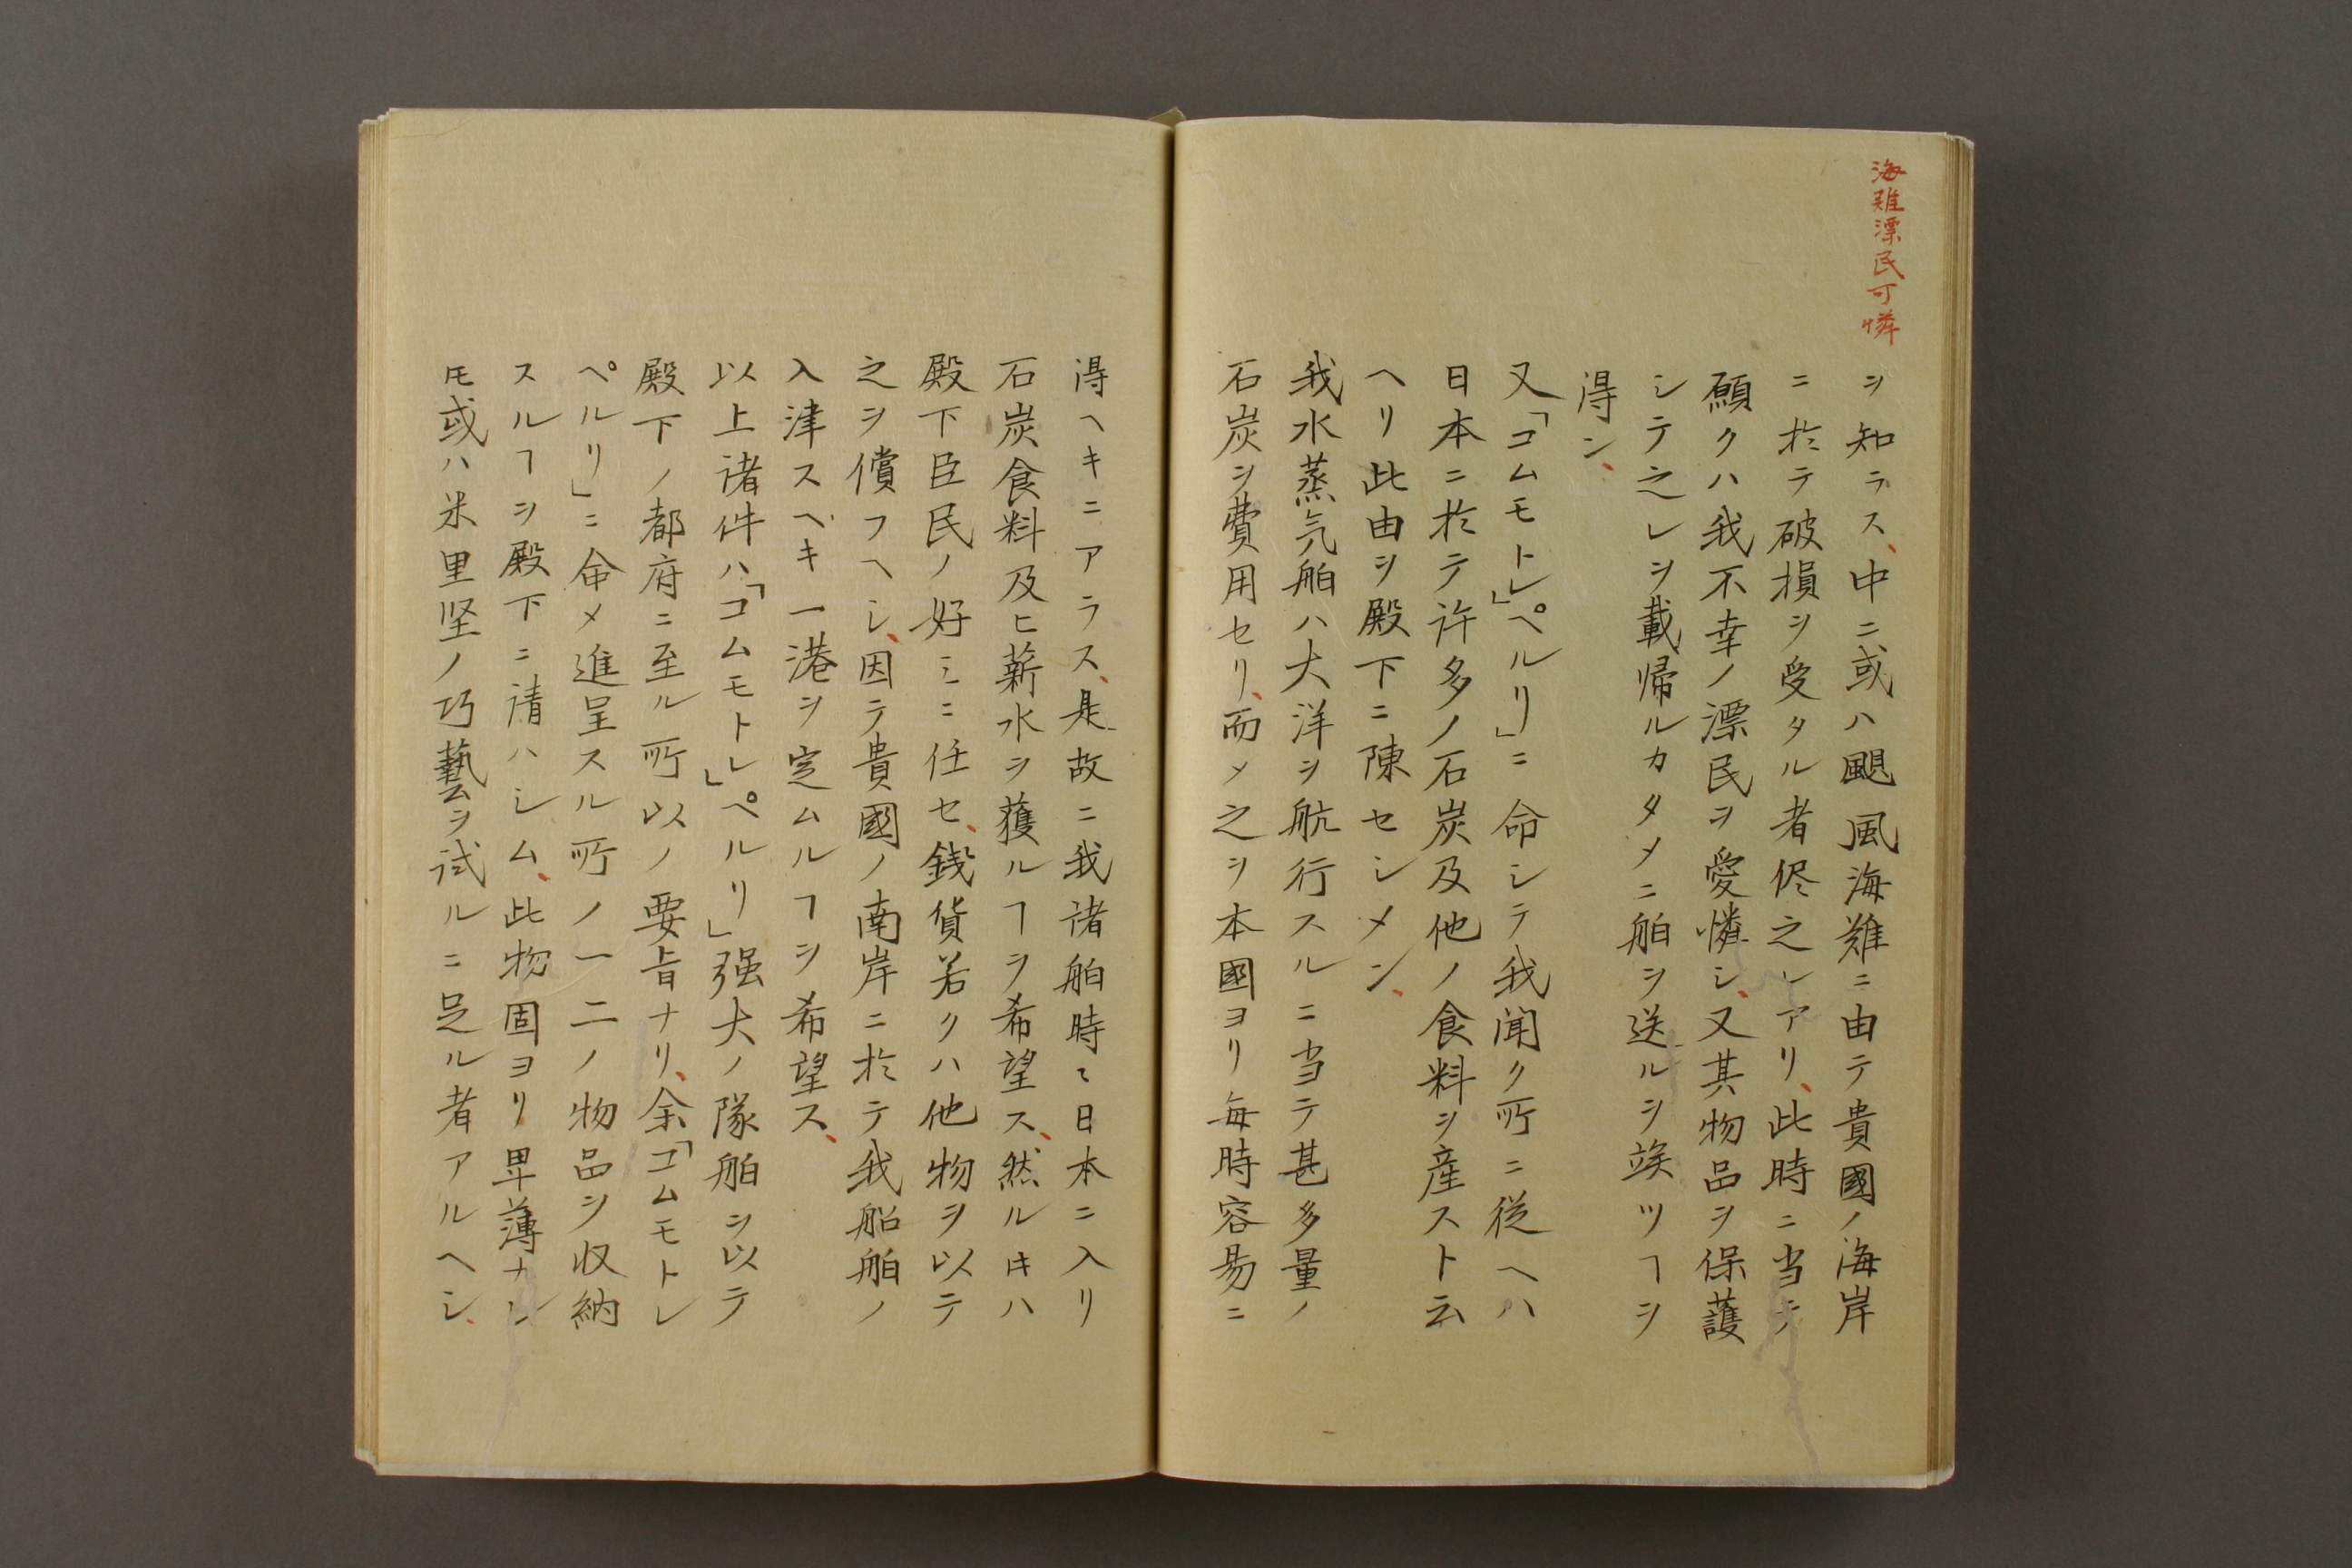 海難漂民可憐
ヲ知ラス、中ニ或ハ颶風海難ニ由テ貴國ノ海岸
ニ於テ破損ヲ受タル者侭之レアリ、此時ニ当テ
願クハ我不幸ノ漂民ヲ愛憐シ、又其物品ヲ保護
シテ之レヲ載帰ルカタメニ舶ヲ送ルヲ竢ツヿヲ
得ン、
又「コムモトレ」ペルリ」ニ命シテ我聞ク所ニ従ヘハ
日本ニ於テ許多ノ石炭及他ノ食料ヲ産スト云
ヘリ此由ヲ殿下ニ陳セシメン、
我水蒸気舶ハ大洋ヲ航行スルニ当テ甚多量ノ
石炭ヲ費用セリ、而メ之ヲ本國ヨリ毎時容易ニ
得ヘキニアラス、是故ニ我諸舶時〻日本ニ入リ
石炭食料及ヒ薪水ヲ獲ルヿヲ希望ス、然ル𪜈ハ
殿下臣民ノ好ミニ任セ、銭貨若クハ他物ヲ以テ
之ヲ償フヘシ、因テ貴國ノ南岸ニ於テ我船舶ノ
入津スヘキ一港ヲ定ムルヿヲ希望ス、
以上諸件ハ「コムモトレ」ペルリ」强大ノ隊舶ヲ以テ
殿下ノ都府ニ至ル所以ノ要旨ナリ、余「コムモトレ
ペルリ」ニ命メ進呈スル所ノ一二ノ物品ヲ収納
スルヿヲ殿下ニ請ハシム、此物固ヨリ卑薄ナレ
𪜈或ハ米里堅ノ巧藝ヲ試ルニ足ル者アルヘシ、